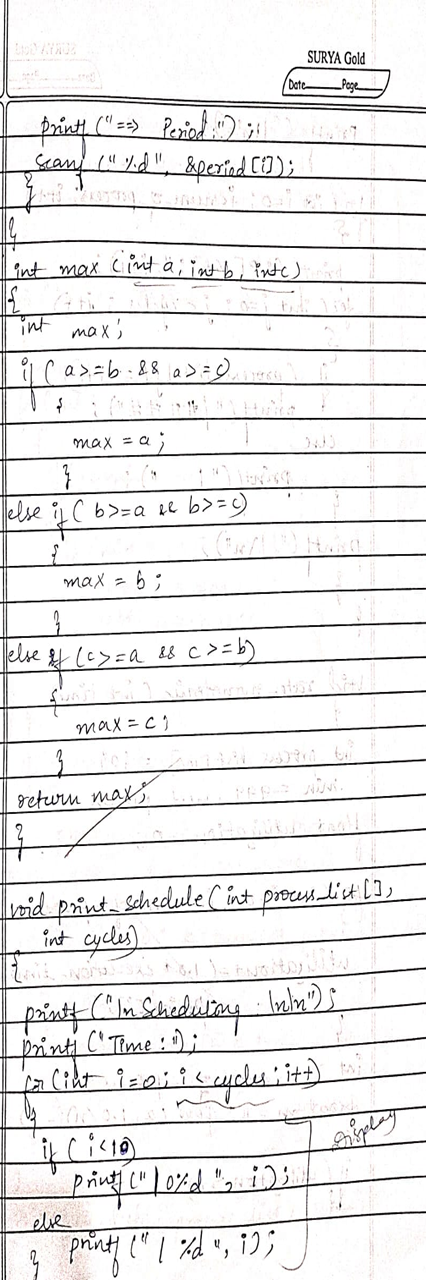 SURYA Gold
Date Page
printf ("==> Period :");
scanf ("%d", &period[i]);
}
}
int max (int a, int b, int c)
{
int max;
if ( a>=b && a>=c)
{
max = a;
}
else if ( b>=a && b>=c)
{
max = b;
}
else if (c>=a && c>=b)
{
max = c;
}
return max;
}
void print_schedule (int process_list [],
int cycles)
{
printf ("\n Scheduling : \n\n");
printf ("Time : ");
for (int i=0; i < cycles; i++)
{
if ( i<10)
printf (" | 0%d ", i);
else
printf (" | %d ", i);
}
Display